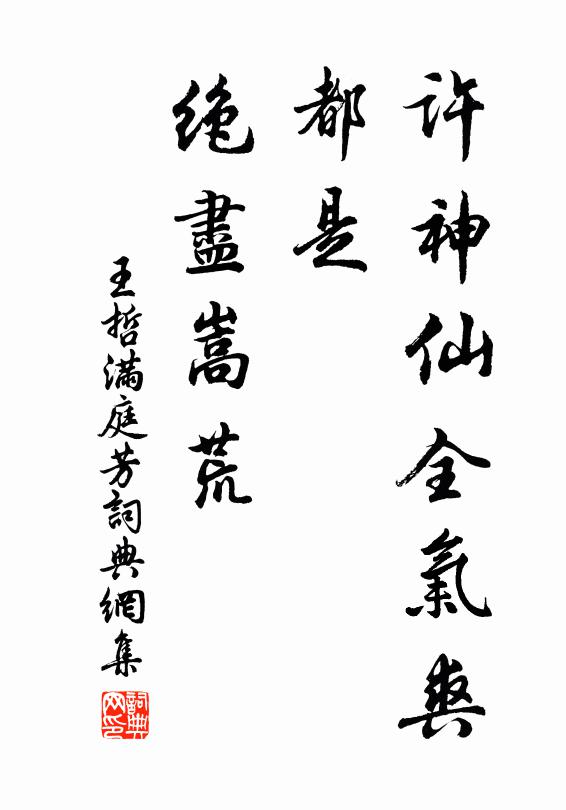 許神仙全氣爽
都是
绝盡嵩荒
王哲滿庭芳詞典網集
詞典网印